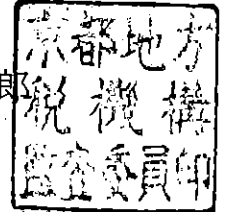 郎
京都地方
税機構
監査委員印